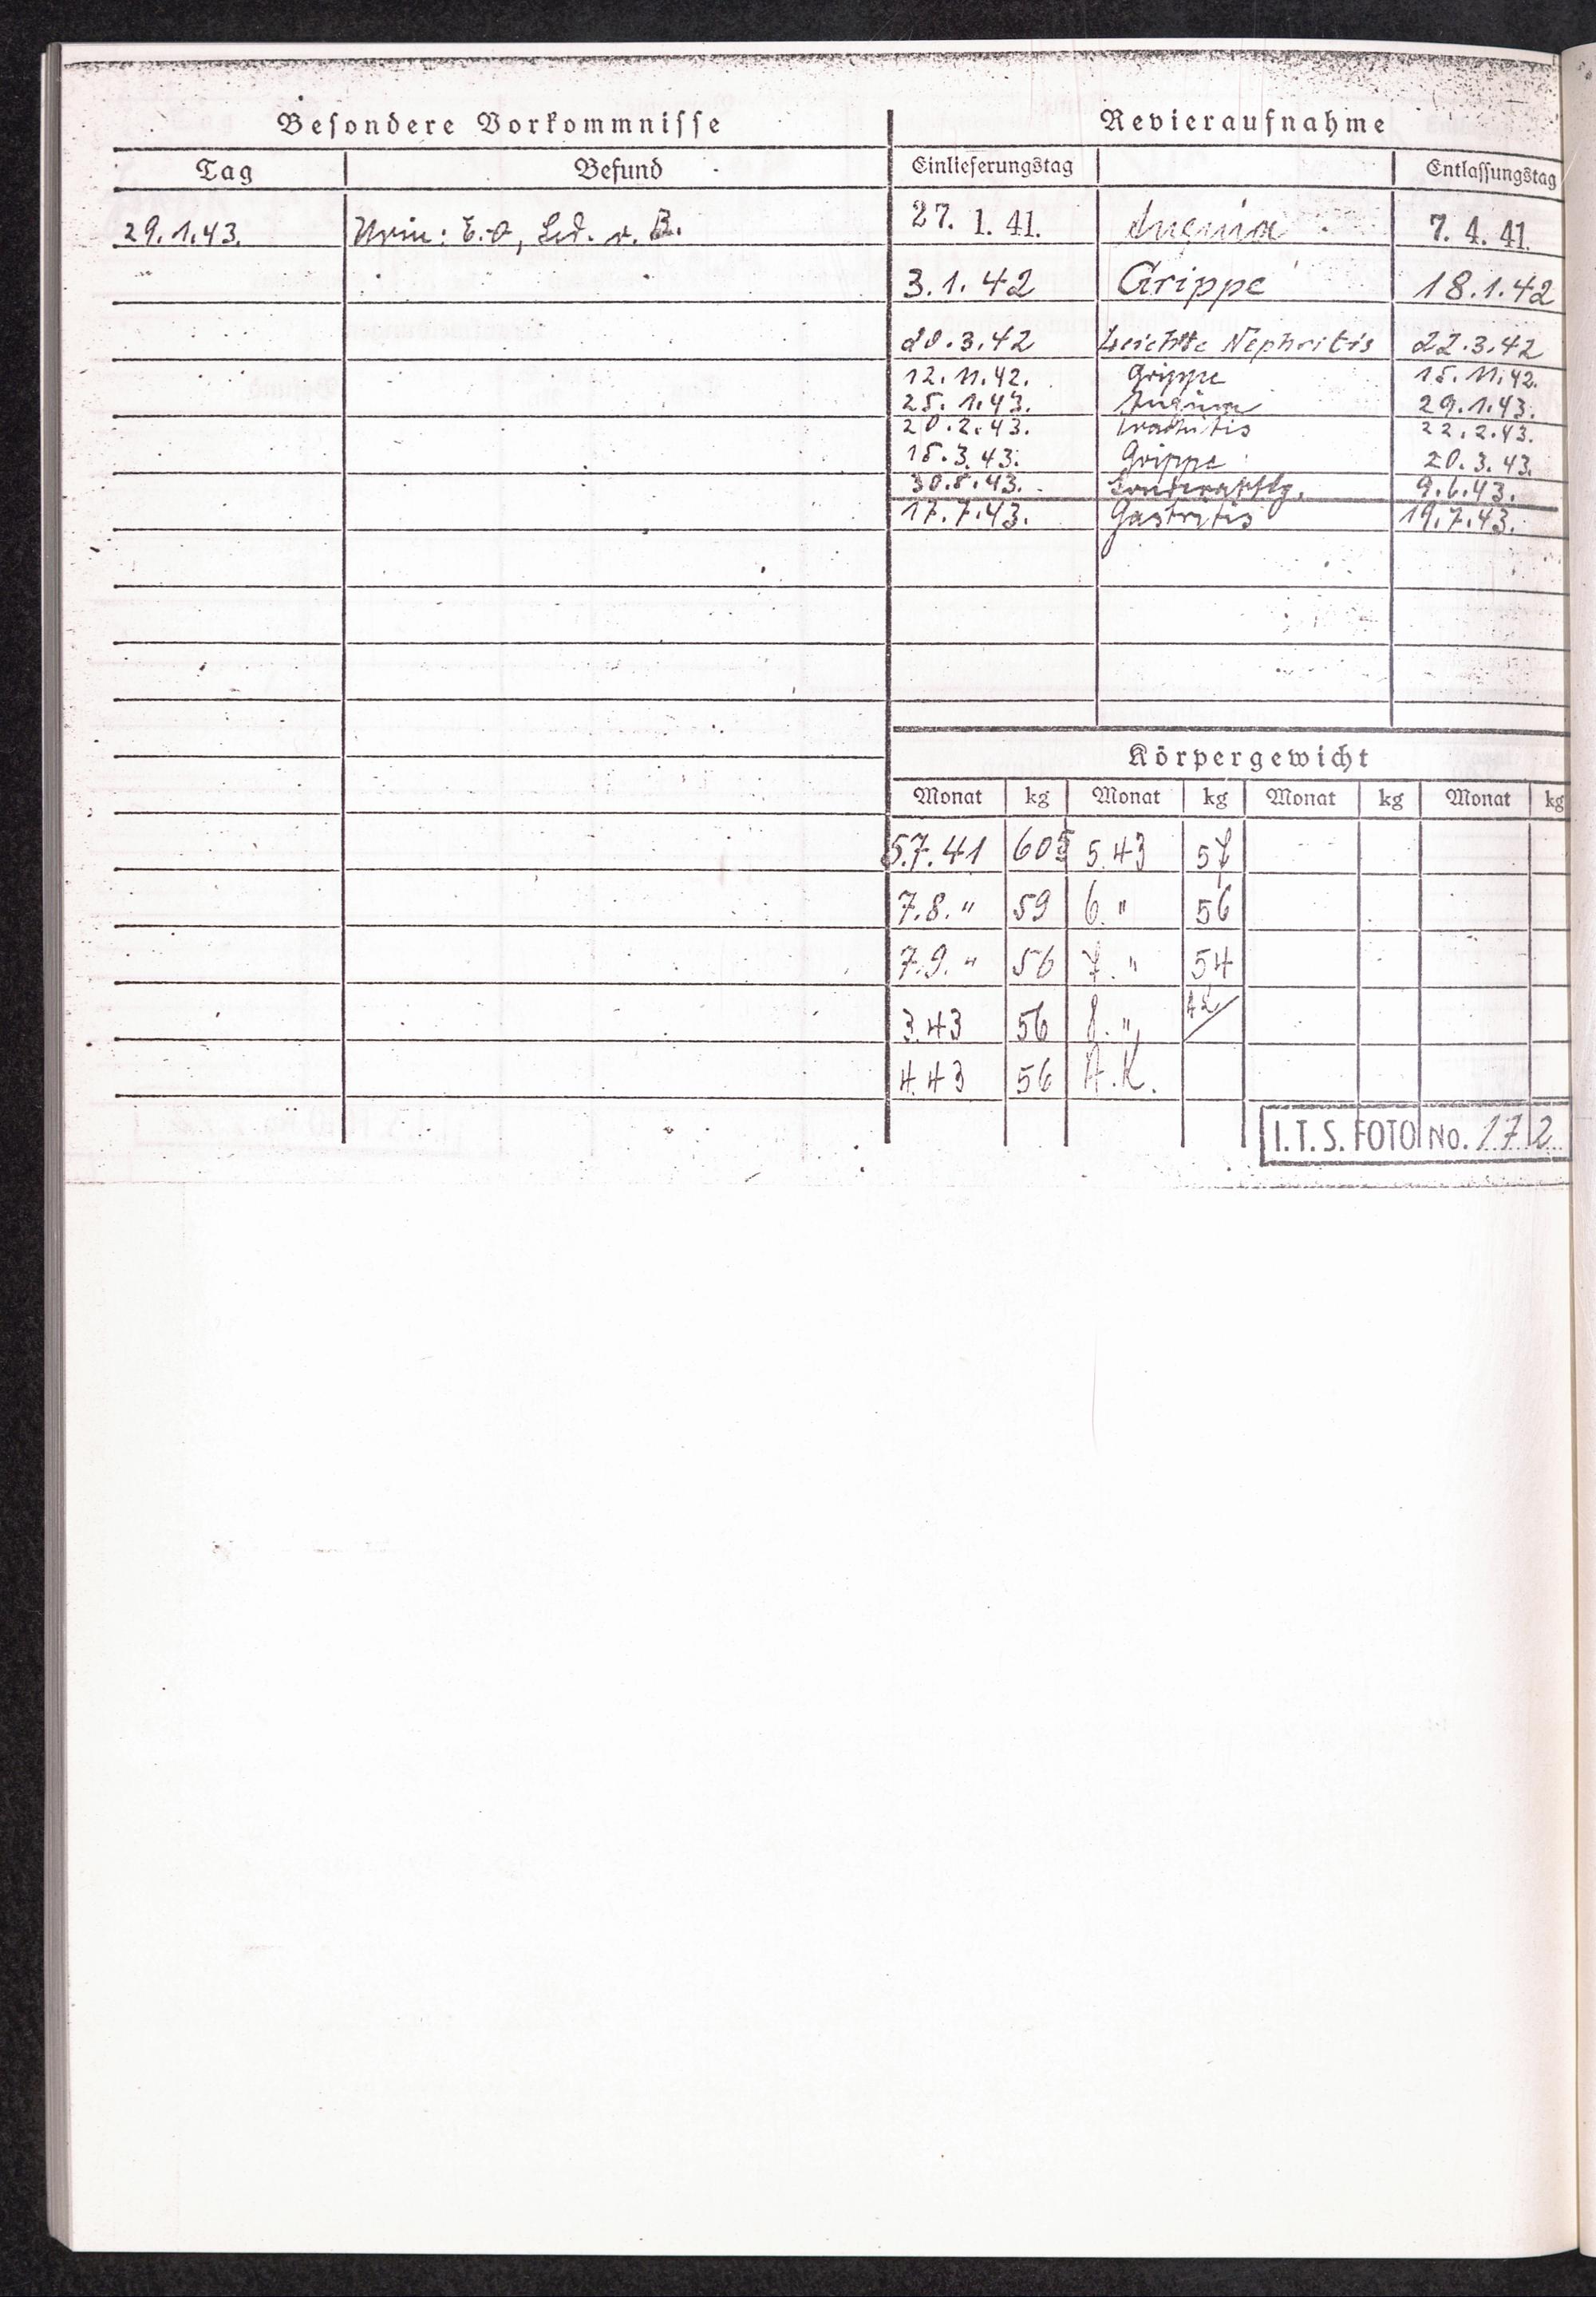 Besondere Vorkommnisse
Tag Befund
29.1.43. Urin: E.
Revieraufnahme
Einlieferungstag Entlassungstag
27. 1. 41. Angina 7. 4. 41.
3.1.42 Grippe 18.1.42
20.3.42 Leichte Nephritis 22.3.42
12.11.42. Grippe 15.11.42.
25.1.43. Angina 29.1.43.
20.2.43. 22.2.43.
15.3.43. Grippe 20.3.43.
30.5.43. 9.6.43.
17.7.43. Gastritis 19.7.43.
Körpergewicht
Monat kg Monat kg Monat kg Monat kg
5.7.41 60⁵ 5.43 57
7.8. " 59 6. " 56
7.9. " 56 7. " 54
3.43 56 8. "
4.43 56 A.K.
I.T.S. FOTO No. 172